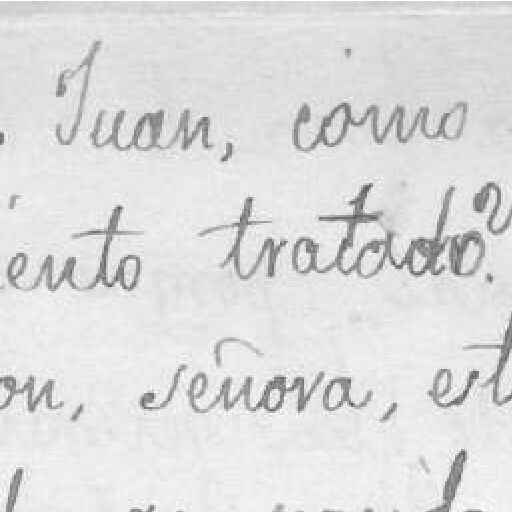 Juan, cómo
iento tratado?
on, señora, est